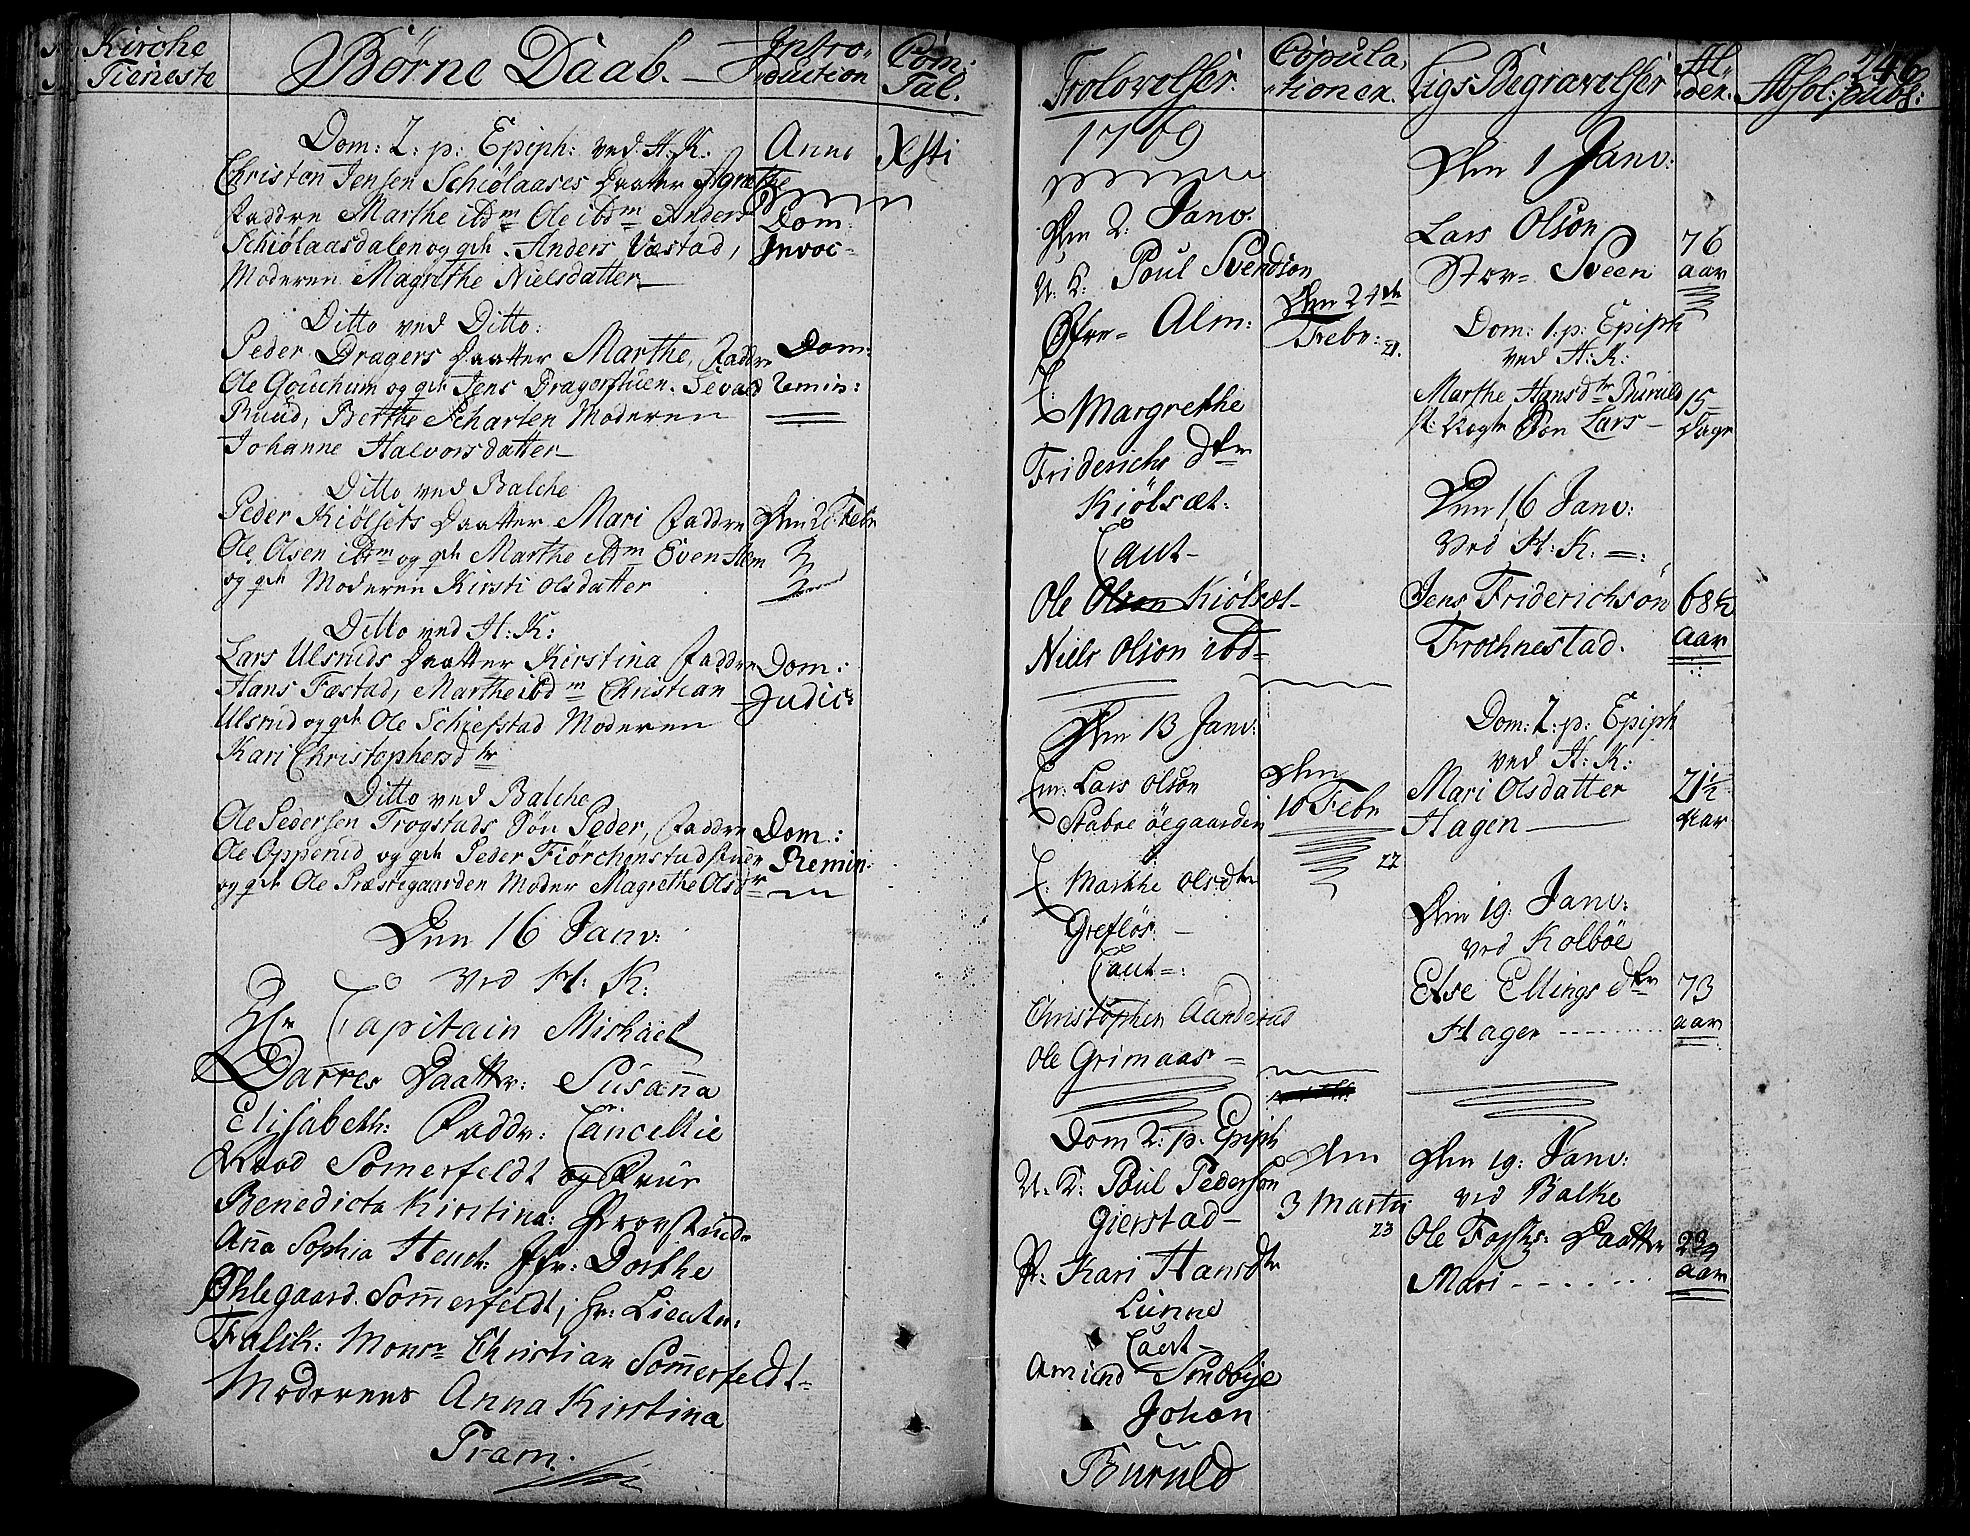 Kirche
Tieneste
Børne Daab.
Intro-
duction
Com:
Tal.
Dom: 2: p: Epiph: ved H. K:
Christen Jensen Schiølaases Daatter Agnethe
Faddre Marthe ibdm Ole ibdm Anders
Schiølaasdalen og qvk. Anders Væstad,
Moderen Magrethe Nielsdatter
Anno
Dom:
Invoc-
Xsti
Ditto ved Ditto:
Peder Dragers Daatter Marthe, Faddre
Ole Gouchum og qvk Jens Dragerstuen. Sevald
Ruud, Berthe Scharten Moderen
Johanne Halvorsdatter
Dom:
Remin:
Ditto ved Balche
Peder Kiølsets Daatter Mari Faddre
Ole Olsen ibdm og qvk Marthe ibdm Even Alm
og qvk Moderen Kirsti Olsdatter
Den 26 Febr
Ditto ved H: K:
Lars Ulsruds Daatter Kirstina Faddre
Hans Fæstad, Marthe ibdm Christian
Ulsrud og qvk Ole Schiefstad Moderen
Kari Christophersdtr
Dom:
Judic:
Ditto ved Balche
Ole Pedersen Trogstads Søn Peder, Faddre
Ole Opperud og qvk Peder Fiørchenstadstuen
og qvk Ole Præstegaarden Moder Magrethe Olsdr
Dom:
Remin:
Den 16 Janv:
Ved H. K:
Hr Capitain Michael
Darres Daatter: Susana
Elisabeth: Faddr: Cancellie
Raad Somerfeldt og Frue
Benedicta Kirstina: Provstinde
Anna Sophia Heuch: Jfr: Dorthe
Øhlegaard Somerfeldt; Hr: Lieutn:
Falck: Monsr Christian Somerfeldt-
Moderens Anna Kirstina
Pram.
Trolovelser.
Copula-
tioner.
Ligs Begravelser
Al-
der.
Absol: publ:
246
1769
Den 2: Janv:
U. K: Poul Svendson
Øfre- Alm:
P: Margrethe
Friderichs dtr
Kiølsæt:
Caut-
Ole Kiølsæt-
Niels Olson ibd
Den 24de
Febr: 21.
Den 13 Janv:
Em: Lars Olson
Staboe øegaarden
P: Marthe Olsdtr
Grefløs.
Caut-:
Christopher Aanderud
Ole Grimaas-
Den
10 Febr
22
Dom 2: p: Epiph
U. K: Poul Pederson
Gierstad-
P: Kari Hansdtr
Lunne
Caut-
Amund Sandbye
Johan
Buruld
Den
3 Martii
23
Den 1 Janv:
Lars Olson
Stor- Sveen
76
aar
Dom: 1: p: Epiph
ved H: K:
Marthe Hansdtr Buruld
15
Dage
Den 16 Janv:
Ved H: K.
Jens Friderichsøn
Frochnestad.
68½
aar
Dom: 2: p: Epiph
ved H: K:
Mari Olsdatter
Hagen
21½
Aar
Den 19: Janv:
ved Kolboe
Else Ellingsdtr
Hagen
73
aar
Den 19: Janv:
ved Balke
Ole Daatter
Mari
aar